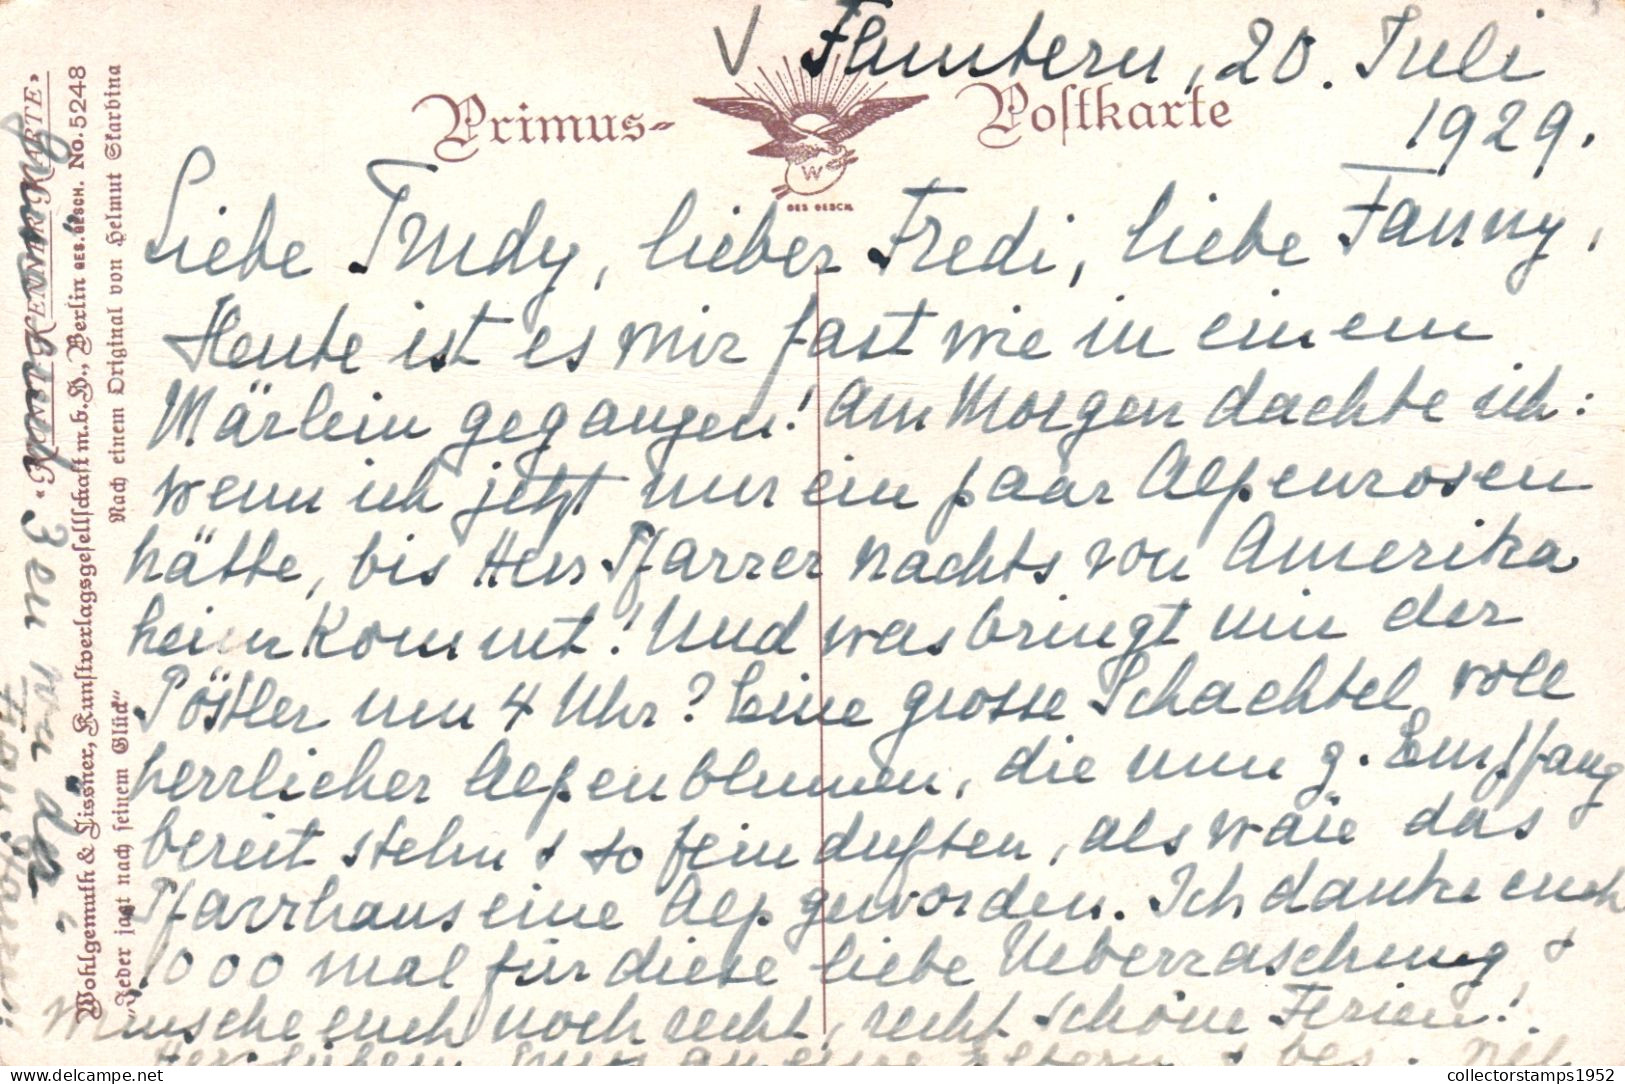 Fluntern, 20. Juli
1929.
Primus-Postkarte
W
GES. GESCH.
Liebe Trudy, lieber Fredi, liebe Fanny,
Heute ist es mir fast wie in einem
Märlein gegangen! Am Morgen dachte ich:
wenn ich jetzt nur ein paar Alpenrosen
hätte, bis Herr Pfarrer nachts von Amerika
heim kommt! Und was bringt mir der
Pöstler um 4 Uhr? Eine grosse Schachtel voll
herrlicher Alpenblumen, die nun z. Empfang
bereit stehn & so fein duften, als wäre das
Pfarrhaus eine Alp geworden. Ich danke euch
1000 mal für diese liebe Ueberraschung &
wünsche euch noch recht, recht schöne Ferien!
Herzlichen Gruss an eure Eltern & bes. viel
Wohlgemuth & Lissner, Kunstverlagsgesellschaft m.b.H., Berlin GES. GESCH. No. 5248
"Jeder jagt nach seinem Glück"
Nach einem Original von Helmut Skarbina
collectorstamps1952